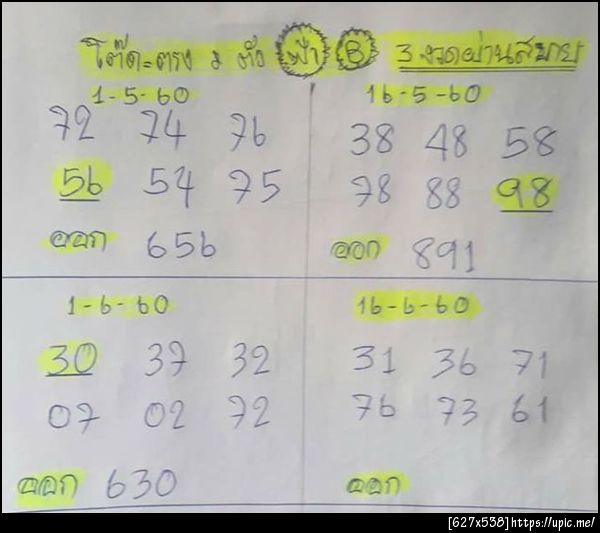 โต๊ด=ตรง 2 ตัว ฟ้า B 3 งวดผ่านสบาย
1-5-60
72 74 76
56 54 75
ออก 656
16-5-60
38 48 58
78 88 98
ออก 891
1-6-60
30 37 32
07 02 72
ออก 630
16-6-60
31 36 71
76 73 61
ออก
[627x538]https://upic.me/